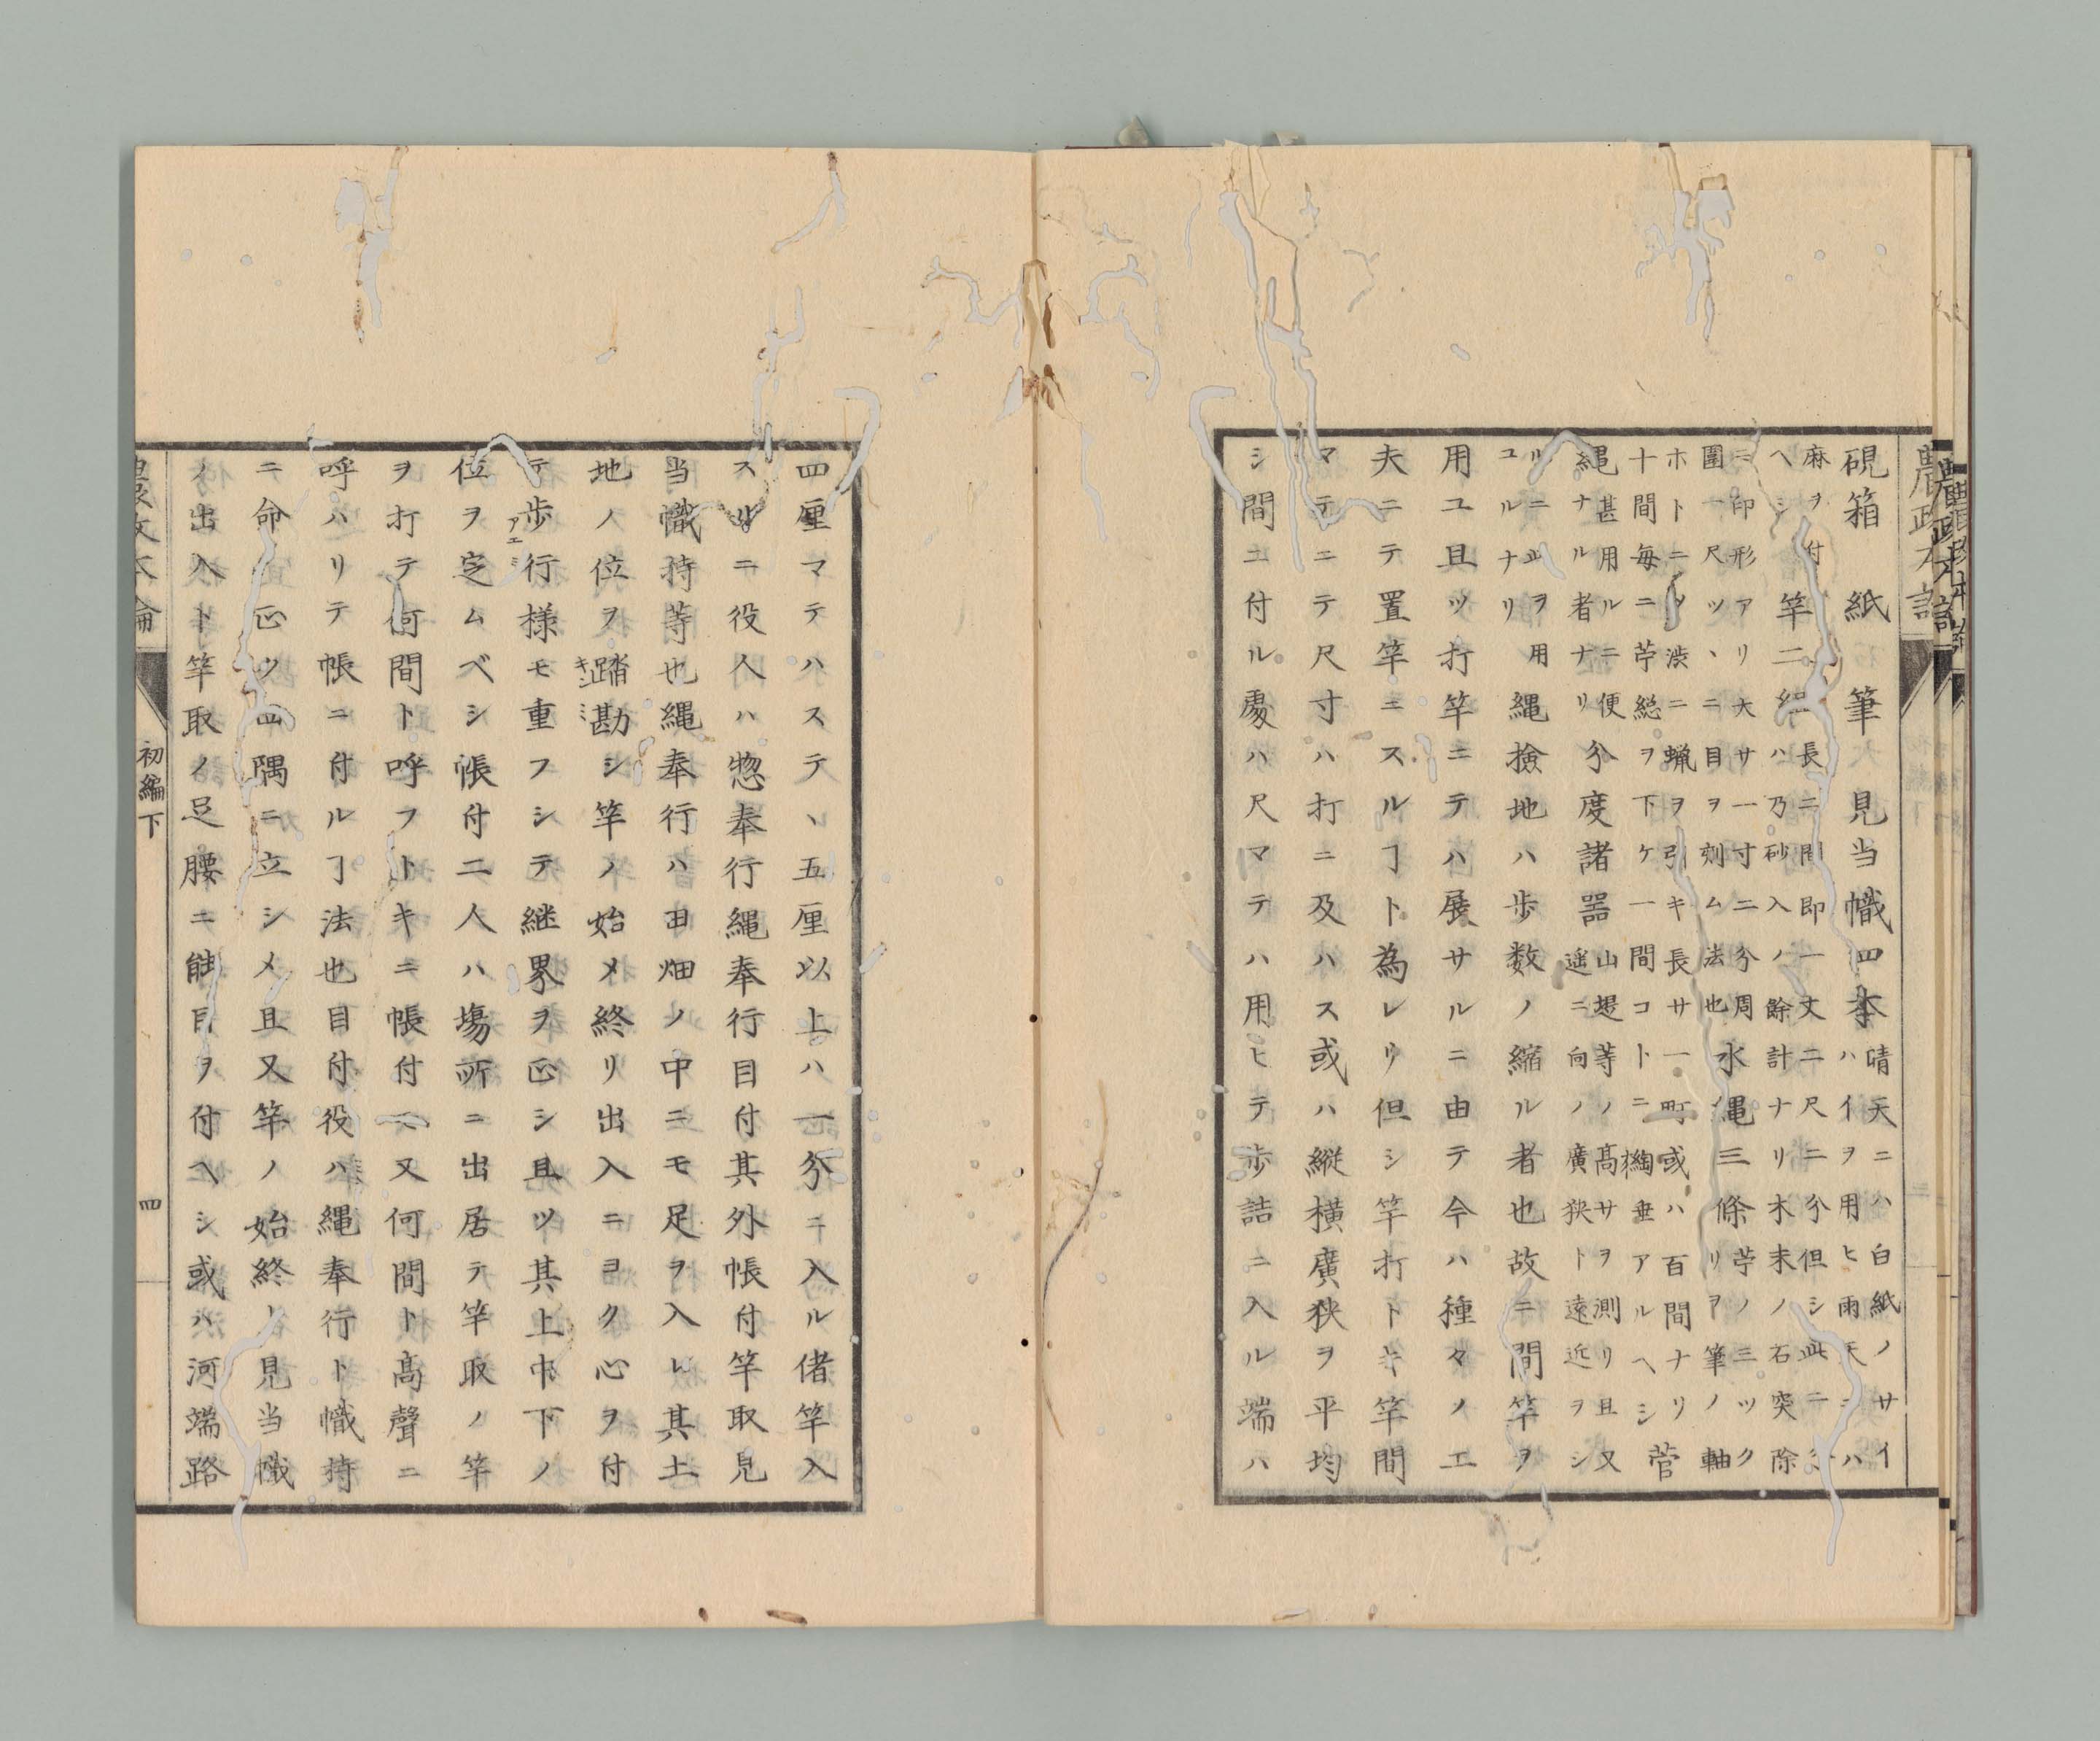 農政本論
硯箱 紙 筆 見当幟四本晴天ニハ白紙ノサイ
ハイヲ用ヒ雨天ニハ
麻ヲ付ヘシ竿二組長二間即一丈二尺二分但シ此二分
ハ乃砂入ノ餘計ナリ木末ノ石突除
ニ印形アリ大サ一寸二分周
圍一尺ツヽニ目ヲ刻ム法也水縄三條苧ノ三ツク
リヲ筆ノ軸
ホトニシ渋ニ蝋ヲ引キ長サ一町或ハ百間ナリ
十間毎ニ苧総ヲ下ケ一間コトニ垂アルヘシ菅
縄甚用ルニ便
ナル者ナリ分度諸器山堤等ノ高サヲ測リ且又
遥ニ向ノ廣狭ト遠近ヲシ
ルニ此ヲ用
ユルナリ縄撿地ハ歩数ノ縮ル者也故ニ間竿ヲ
用ユ且ツ打竿ニテハ展サルニ由テ今ハ種々ノ工
夫ニテ置竿ニスルヿト為レリ但シ竿打トキ竿間
マテニテ尺寸ハ打ニ及ハス或ハ縦横廣狭ヲ平均
シ間ニ付ル處ハ尺マテハ用ヒテ歩詰ニ入ル端ハ
四厘マテハステヽ五厘以上ハ一分ニ入ル偖竿入
スルニ役人ハ惣奉行縄奉行目付其外帳付竿取見
当幟持等也縄奉行ハ田畑ノ中ニモ足ヲ入レ其土
地ノ位ヲ踏勘シ竿ノ始メ終リ出入ニヨク心ヲ付
テ歩行様モ重フシテ継界ヲ正シ且ツ其上中下ノ
位ヲ定ムベシ帳付二人ハ場所ニ出居テ竿取ノ竿
ヲ打テ何間ト呼フトキニ帳付ハ又何間ト高聲ニ
呼ハリテ帳ニ付ルヿ法也目付役ハ縄奉行ト幟持
ニ命シ正ツ四隅ニ立シメ且又竿ノ始終ト見当幟
ノ出入ト竿取ノ足腰ニ能目ヲ付ヘシ或ハ河端路
農政本論 初編下 四